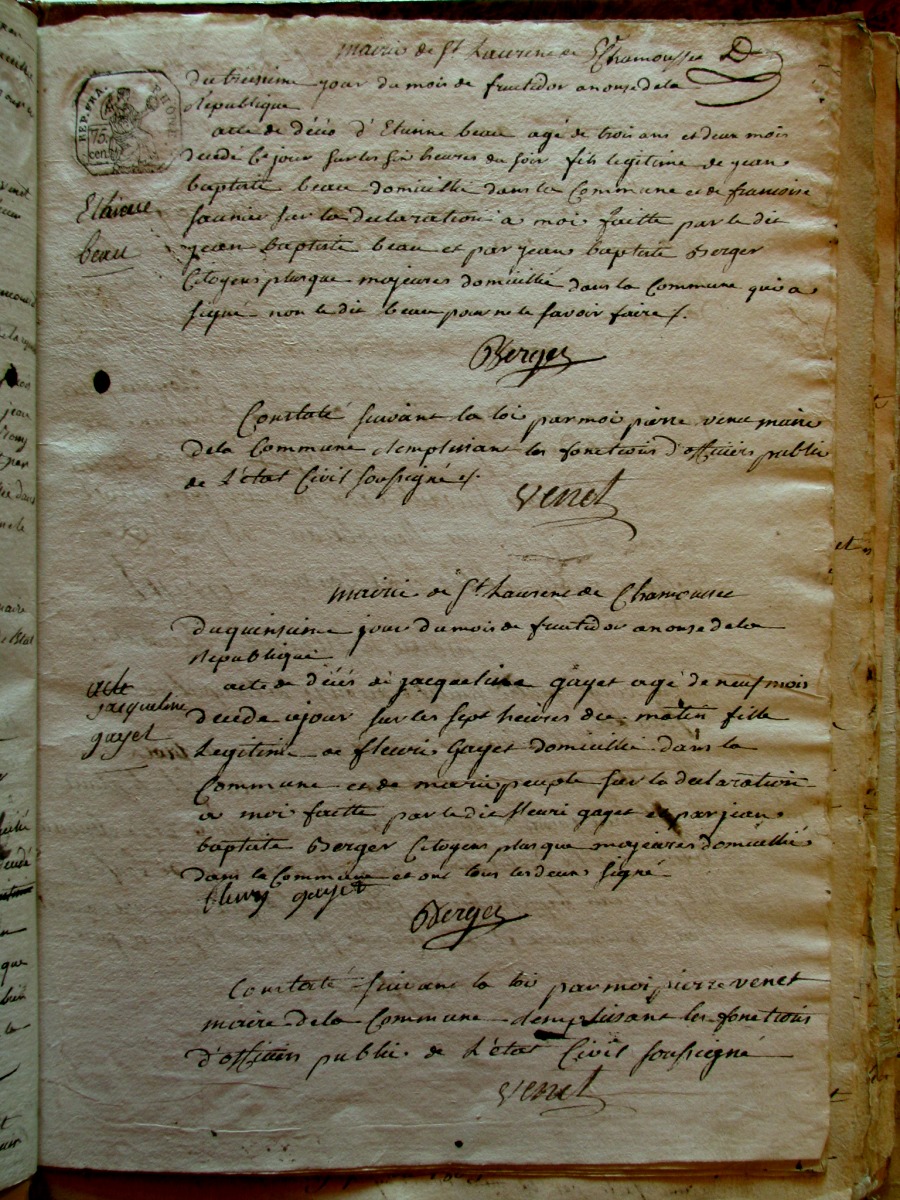 mairie de St Laurent de Chamousset D
du treisieme jour du mois de fructidor an onse de la
Republique
REP. FRA.
RHONE
75.
cent
acte de décés d'Etienne beau agé de trois ans et deux mois
decedé ce jour sur les six heures du soir fils legitime de jean
baptiste beau domicillié dans la Commune et de francoise
saunier sur la declaration a moi faitte par le dit
Etienne
beau
jean baptiste beau et par jean baptiste Berger
Citoyens plus que majeures domicillié dans la Commune qui a
signe non le dit beau pour ne le savoir faire
Berger
Constaté suivant la loi par moi pierre venet maire
de la Commune Remplissant les fonctions d'officiers public
de L'état Civil soussigné
venet
mairie de St Laurent de Chamousset
Du quinsieme jour du mois de fructidor an onse de la
Republique
acte de décés de jacqueline gayet agé de neuf mois
acte
jacqueline
gayet
decede ce jour sur les sept heures du matin fille
Legitime de fleuri Gayet domicillié dans la
Commune et de marie peuple sur la declaration
a moi faitte par le dit fleuri gayet et par jean
baptiste Berger Citoyens plus que majeures domicillié
dans la Commune et ont tous les deux signé
fleury gayet
Berger
Constaté suivant la loi par moi pierre venet
maire de la Commune Remplissant les fonctions
d'officiers public de L'état Civil soussigné
venet